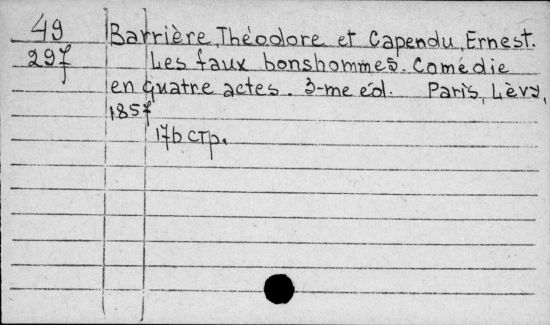 49
297
Barrière, Théodore et Capendu, Ernest.
Les faux bonshommes. Comédie
en quatre actes. 3-me éd. Paris, Lèvy,
1857
176 стр.